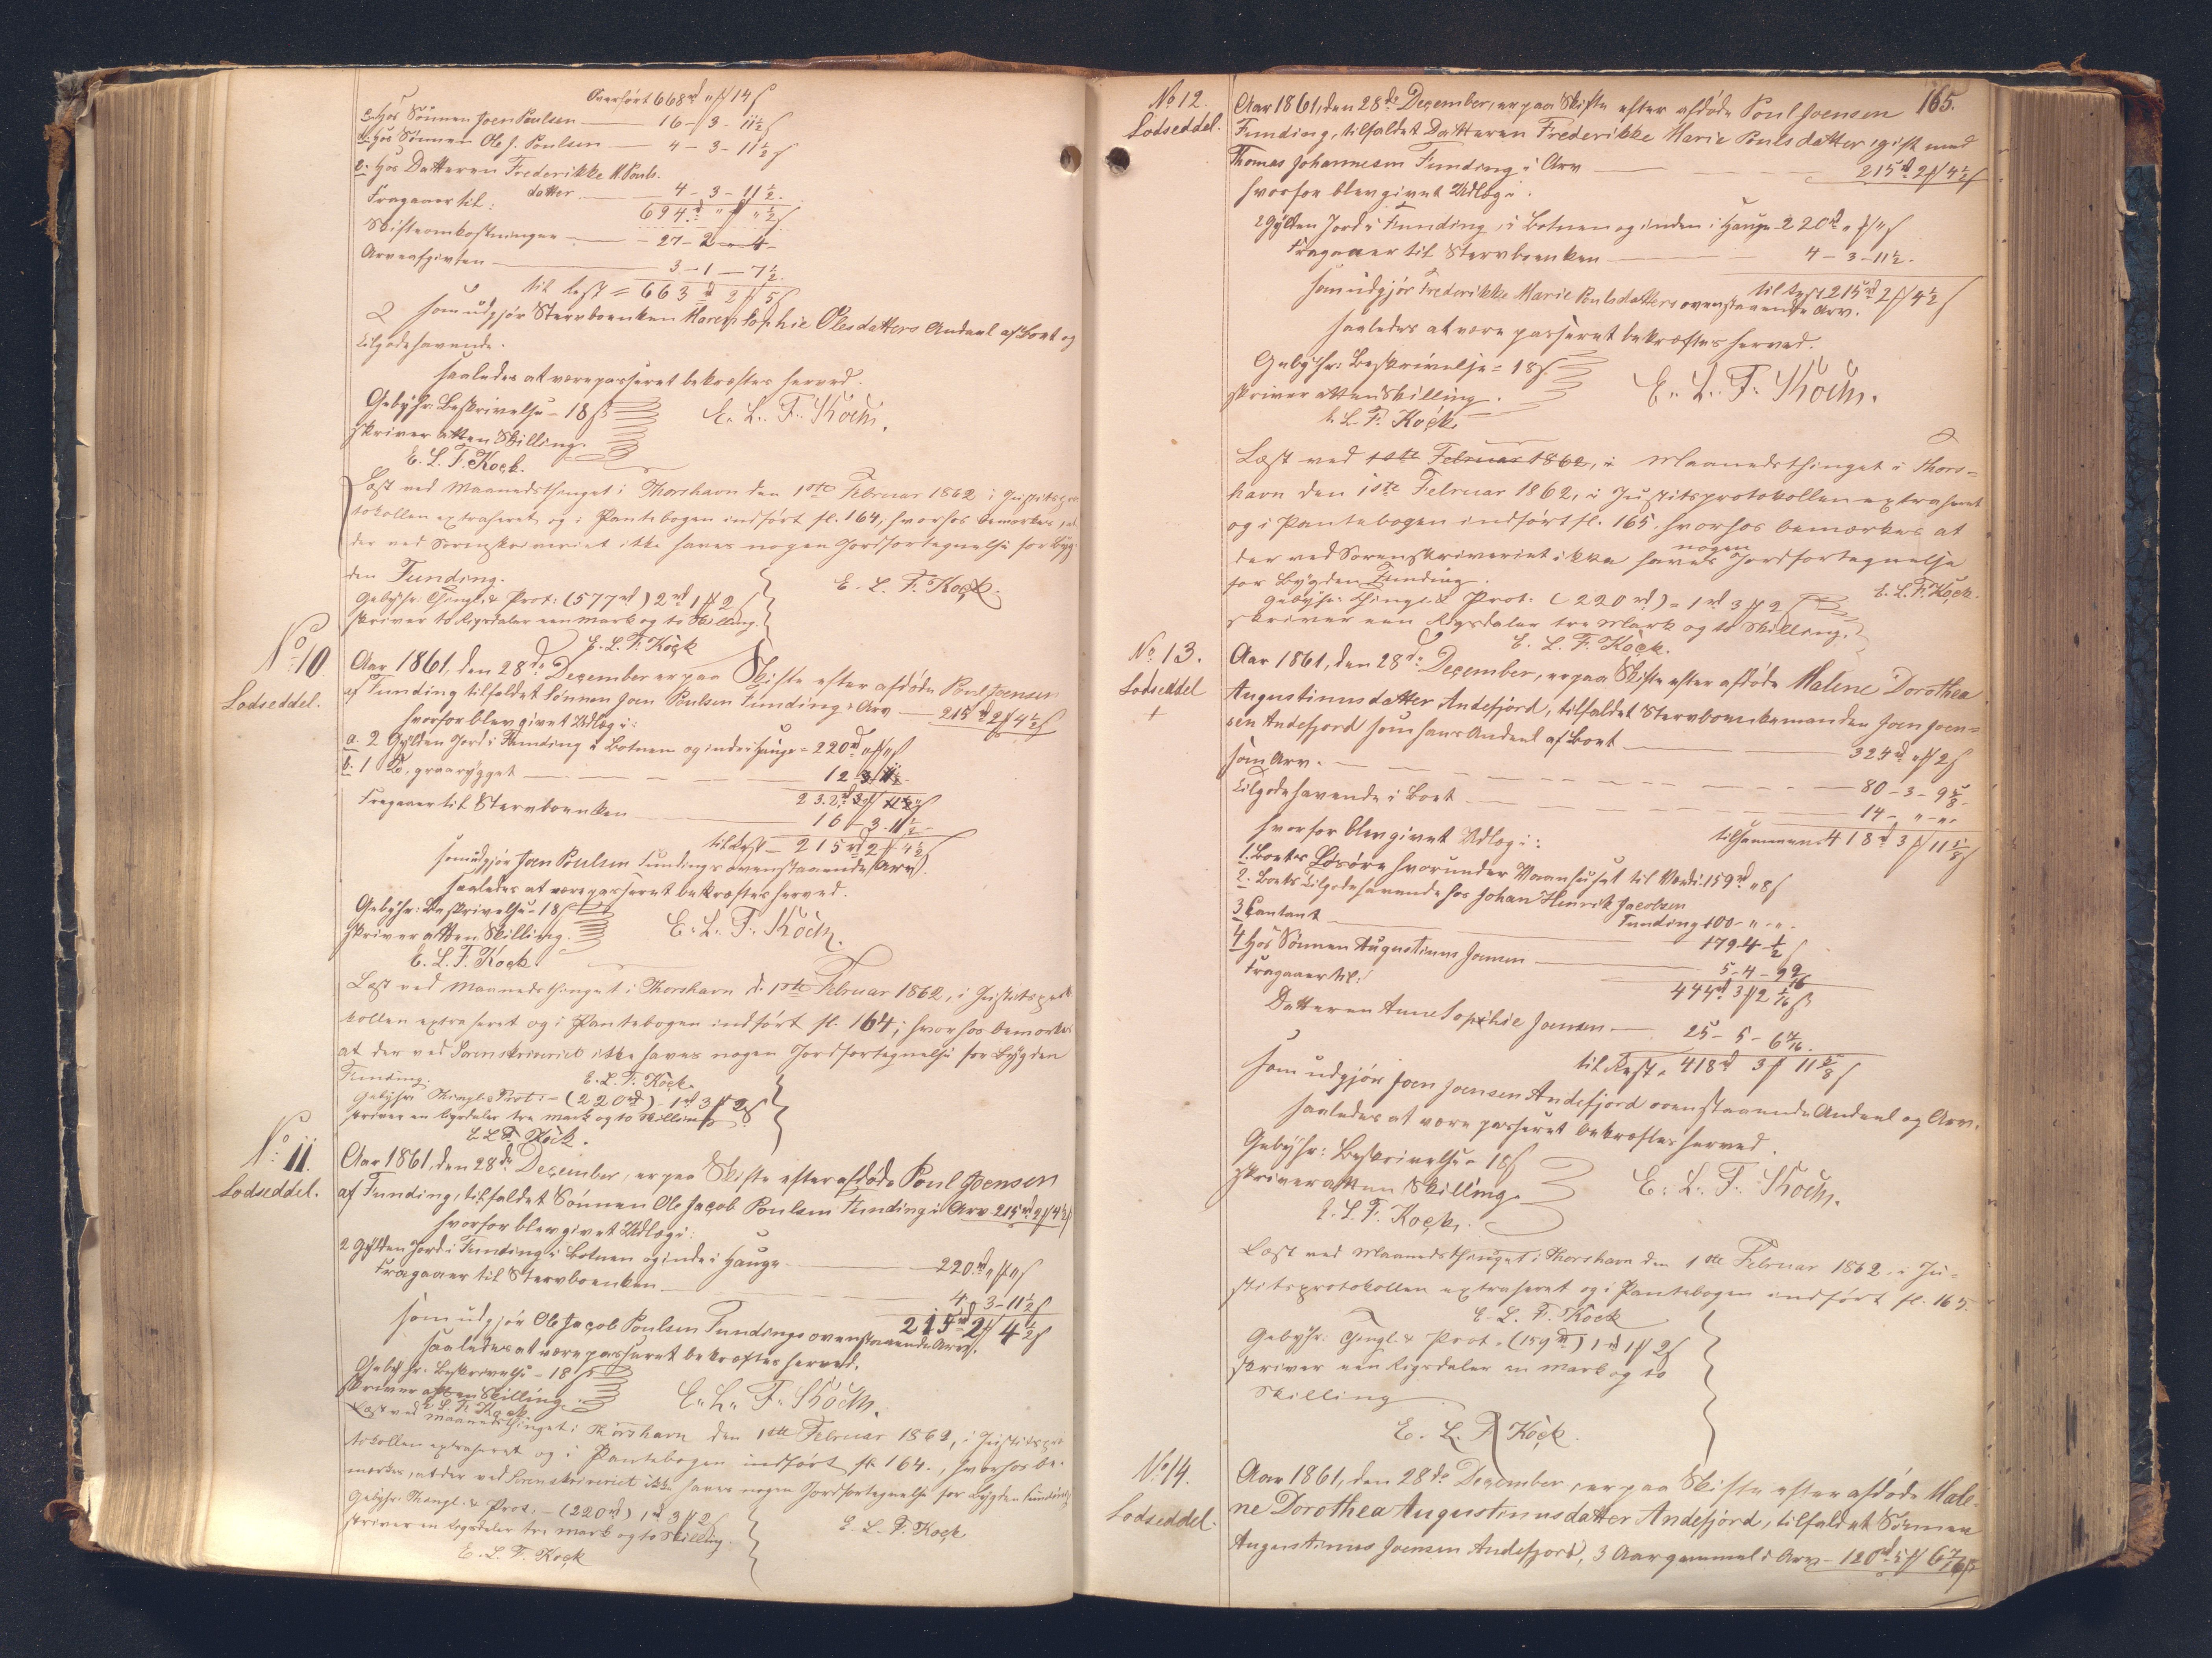 Overført 668rd " ß 14 ß
c. Hos Sønnen Joen Poulsen — 16 - 3 - 11½ ß
d. Hos Sønnen Ole J. Poulsen — 4 - 3 - 11½ ß
e. Hos Datteren Frederikke M. Pouls-
datter — 4 - 3 - 11½.
Fragaaer til:
694rd " ß " ½ ß
Skifteomkostninger — 27 - 2 - 4 -
Arveafgivten — 3 - 1 - 7½.
til Rest = 663rd 2 ß 5 ß
som udgjør Stervboenken Maren Sophie Olesdatters Andeel af Boet og
Tilgodehavende.
saaledes at være passeret bekræftes herved.
Gebyhr: Beskrivelse - 18 ß
skriver atten Skilling.
E. L. F. Koch.
E. L. F. Koch.
Læst ved Maanedsthinget i Thorshavn den 1ste Februar 1862 i Justitspro-
tokollen extraheret og i Pantebogen indført fl. 164, hvorhos bemærkes, at
der ved Sorenskriveriet ikke haves nogen Jordfortegnelse for Byg-
den Funding.
E. L. F. Kock.
Gebyhr: Thingl. & Prot: (577rd) 2rd 1 ß 2 ß
skriver to Rigsdaler een mark og to Skilling.
E. L. F. Kock
No 10.
Lodseddel.
Aar 1861, den 28de December er paa Skifte efter afdøde Poul Joensen
af Funding tilfaldet Sønnen Joen Poulsen Funding i Arv — 215rd 2 ß 4½ ß
hvorfor blev givet Udlæg i:
a. 2 Gylden Jord i Funding i Botnen og inde i Hauge = 220rd " ß " ß
b. 1 Ko, graarygget — 12 - 3 - 11½ -
232rd 3 ß 11½ ß
Fragaaer til Stervboenken — 16 - 3 - 11½ -
til Rest — 215rd 2 ß 4½ ß
som udgjør Joen Poulsen Fundings ovenstaaende Arv.
saaledes at være passeret bekræftes herved.
Gebyhr: Beskrivelse - 18 ß
skriver atten Skilling.
E. L. F. Koch.
E. L. F. Kock.
Læst ved Maanedsthinget i Thorshavn d. 1ste Februar 1862, i Justitsproto-
kollen extraheret og i Pantebogen indført fl. 164; hvorhos bemærkes
at der ved Sorenskriveriet ikke haves nogen Jordfortegnelse for Bygden
Funding.
E. L. F. Kock.
Gebyhr: Thingl. & Prot: - (220rd) - 1rd 3 ß 2 ß
skriver en Rigsdaler tre mark og to Skilling
E. L. F. Kock.
No 11.
Lodseddel.
Aar 1861, den 28de December, er paa Skifte efter afdøde Poul Joensen
af Funding, tilfaldet Sønnen Ole Jacob Poulsen Funding i Arv 215rd 2 ß 4½ ß
hvorfor blev givet Udlæg i:
2 Gylden Jord i Funding i Botnen og inde i Hauge — 220rd " ß " ß
Fragaaer til Stervboenken — 4 - 3 - 11½ ß
215rd 2 ß 4½ ß
som udgjør Ole Jacob Poulsen Fundings ovenstaaende Arv.
saaledes at være passeret bekræftes herved.
Gebyhr: Beskrivelse - 18 ß
skriver atten Skilling.
E. L. F. Koch.
E. L. F. Kock
Læst ved Maanedsthinget i Thorshavn den 1ste Februar 1862, i Justitspro-
tokollen extraheret og i Pantebogen indført fl. 164., hvorhos be-
mærkes, at der ved Sorenskriveriet ikke haves nogen Jordfortegnelse for Bygden Funding
Gebyhr: Thingl. & Prot. - (220rd) 1rd 3 ß 2 ß
skriver en Rigsdaler tre mark og to Skilling.
E. L. F. Kock
E. L. F. Kock
165.
No 12.
Lodseddel.
Aar 1861, den 28de December, er paa Skifte efter afdøde Poul Joensen
Funding, tilfaldet Datteren Frederikke Marie Poulsdatter, gift med
Thomas Johannesen Funding i Arv — 215rd 2 ß 4½ ß
hvorfor blev givet Udlæg i:
2 Gylden Jord i Funding, i Botnen og inden i Hauge 220rd " ß " ß
Fragaaer til Stervboenken — 4 - 3 - 11½.
til Rest 215rd 2 ß 4½ ß
som udgjør Frederikke Marie Poulsdatters ovenstaaende Arv.
saaledes at være passeret bekræftes herved.
Gebyhr: Beskrivelse = 18 ß
skriver atten Skilling.
E. L. F. Koch.
E. L. F. Kock.
Læst ved 1ste Februar 1862, i Maanedsthinget i Thors-
havn den 1ste Februar 1862, i Justitsprotokollen extraheret
og i Pantebogen indført fl. 165. hvorhos bemærkes at
der ved Sorenskriveriet ikke haves nogen Jordfortegnelse
for Bygden Funding.
E. L. F. Kock.
Gebyhr: Thingl. & Prot: (220rd) = 1rd 3 ß 2 ß
skriver een Rigsdaler tre Mark og to Skilling.
E. L. F. Kock.
No 13.
Lodseddel
+
Aar 1861, den 28de December, er paa Skifte efter afdøde Malene Dorothea
Augustinusdatter Andefjord, tilfaldet Stervboenkemanden Joen Joen-
sen Andefjord som hans Andeel af Boet — 324rd " ß 2 ß
som Arv. — 80 - 3 - 9⅝ -
Tilgodehavende i Boet — 14 - " - " -
tilsammen 418rd 3 ß 11⅝ ß
hvorfor blev givet Udlæg i:
1. Boets Løsøre hvorunder Vaanhuset til Værdi 159rd " 8 ß
2. Boets Tilgodehavende hos Johan Henrik Jacobsen
Funding 100 - " - " -
3 Contant — 179 - 4 - ½ ß
4 Hos Sønnen Augustinus Joensen — 5 - 4 - 9 9/16
444rd 3 ß 2 1/16 ß
Fragaaer til:
Datteren Anne Sophie Joensen — 25 - 5 - 6 7/16.
til Rest = 418rd 3 ß 11⅝ ß
som udgjør Joen Joensen Andefjord ovenstaaende Andeel og Arv.
saaledes at være passeret bekræftes herved.
Gebyhr: Beskrivelse = 18 ß
skriver atten Skilling.
E. L. F. Koch.
E. L. F. Kock.
Læst ved Maanedsthinget i Thorshavn den 1ste Februar 1862 i Ju-
stitsprotokollen extraheret og i Pantebogen indført fl. 165.
E. L. F. Kock
Gebyhr: Thingl. & Prot. = (159rd) 1rd 1 ß 2 ß
skriver een Rigsdaler en Mark og to
Skilling
E. L. F. Kock.
No 14.
Lodseddel.
Aar 1861, den 28de December, er paa Skifte efter afdøde Male-
ne Dorothea Augustinusdatter Andefjord, tilfaldet Sønnen
Augustinus Joensen Andefjord, 3 Aar gammel i Arv — 120rd 5 ß 6 7/16 ß